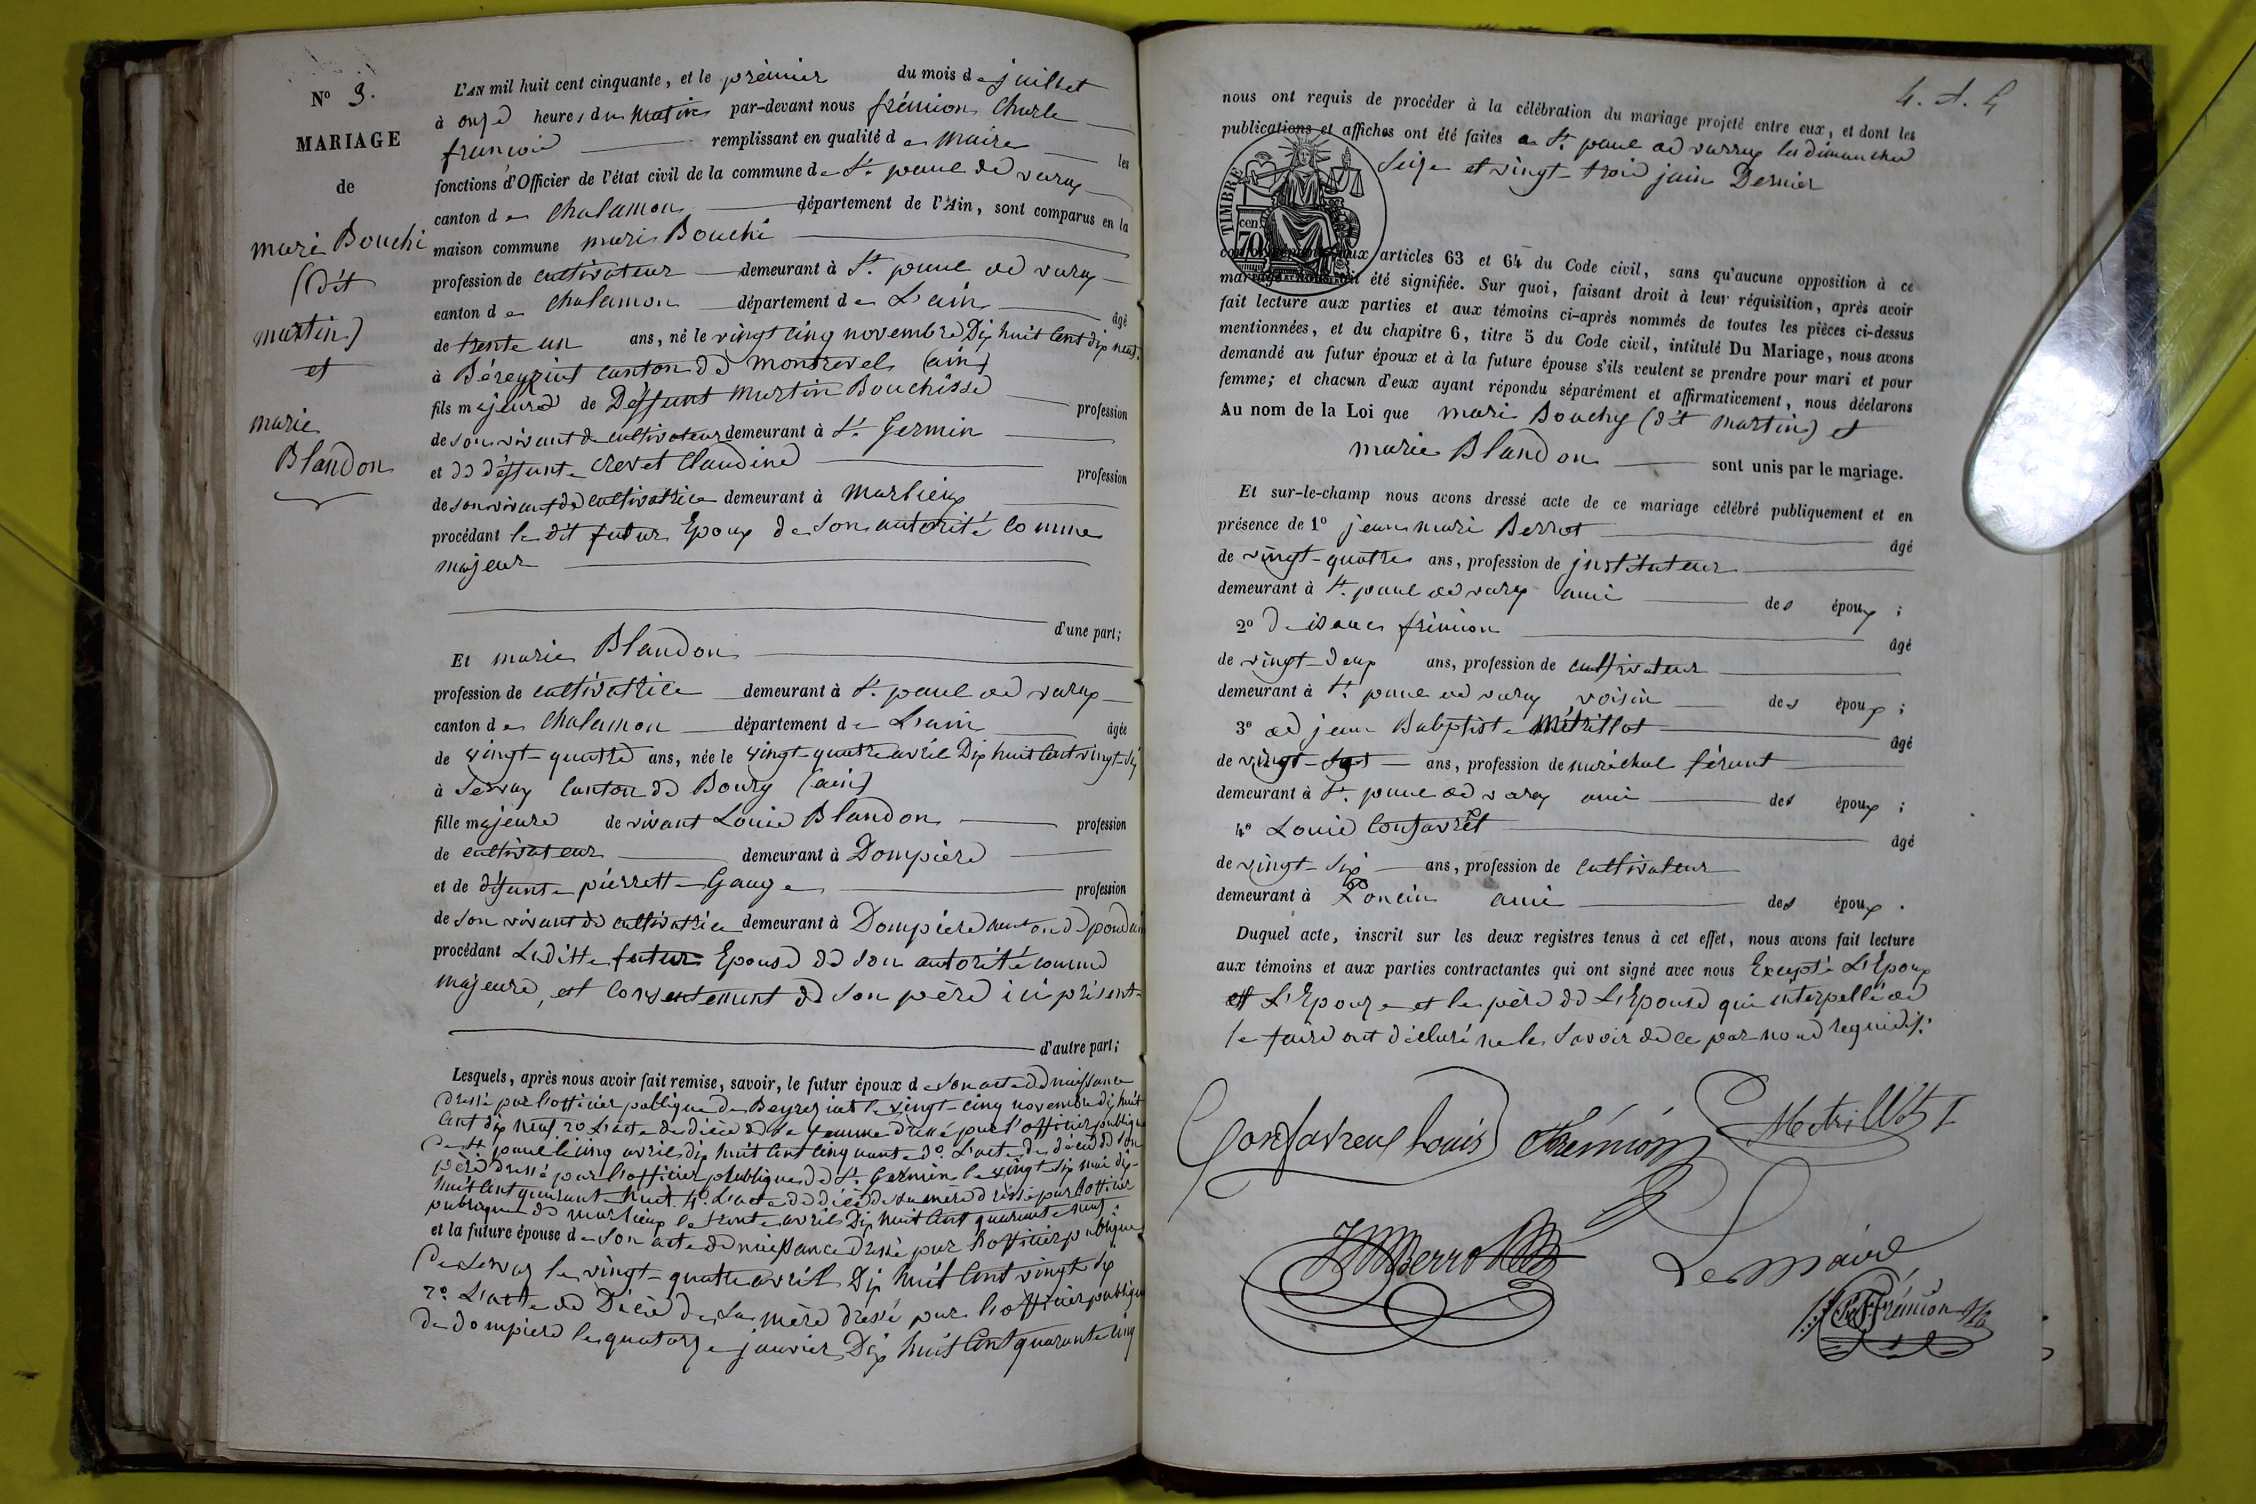 N° 9.
MARIAGE
de
marie Bouchi
(dit
martin)
et
marie
Blandon
L'AN mil huit cent cinquante, et le prémier du mois de juillet
à onze heures du matin par-devant nous frémion Charle
françois remplissant en qualité de maire les
fonctions d'Officier de l'état civil de la commune de St. paul de varax
canton de chalamon département de l'Ain, sont comparus en la
maison commune marie Bouchi
profession de cultivateur demeurant à St. paul de varax
canton de chalamon département de L'ain âgé
de trente un ans, né le vingt cinq novembre Dix huit Cent dix neuf.
à Béreyziat canton de montrevel (ain)
fils majeure de Deffunt Martin Bouchisse profession
de son vivant de cultivateur demeurant à St. Germin
et de déffunte crevet Claudine profession
de son vivant de cultivatrice demeurant à Marlieux
procédant le dit futur Epoux de son autorité comme
majeur
d'une part;
Et marie Blandon
profession de cultivatrice demeurant à St. paul de varax
canton de Chalamon département de L'ain âgée
de vingt-quatre ans, née le vingt-quatre avril Dix huit Cent vingt-six
à Servas Canton de Bourg (ain)
fille majeure de vivant Louis Blandon profession
de cultivateur demeurant à Dompière
et de défunte pierrette Gauge profession
de son vivant de cultivatrice demeurant à Dompière canton de pondain
procédant Laditte future Epouse de son autorité comme
majeure, et consentement de son père ici présent
d'autre part;
Lesquels, après nous avoir fait remise, savoir, le futur époux de son acte de naissance
dressé par l'officier publique de Beyreziat le vingt-cinq novembre dix huit
Cent dix neuf. 2° L'acte de décès de sa femme dressé par l'officier publique
de St. paul le cinq avril dix huit Cent Cinquante 3°. L'acte de décès de son
père dressé par l'officier publique de St. Germin le vingt six mai dix-
huit Cent quarante huit 4°. L'acte de décès de sa mère dressé par l'officier
publique de Marlieux le trente avril Dix huit Cent quarante neuf.
et la future épouse de son acte de naissance dressé par l'officier publique
de servas le vingt-quatre avril Dix huit Cent vingt six
2°. L'acte de Décès de sa mère dressé par l'officier publique
de dompiere le quatorze janvier Dix huit Cent quarante cinq
nous ont requis de procéder à la célébration du mariage projeté entre eux, et dont les
publications et affiches ont été faites à St. paul de varax les dimanches
Seize et vingt-trois juin Dernier
TIMBRE
70 cen.
conformément aux articles 63 et 64 du Code civil, sans qu'aucune opposition à ce
mariage nous ait été signifiée. Sur quoi, faisant droit à leur réquisition, après avoir
fait lecture aux parties et aux témoins ci-après nommés de toutes les pièces ci-dessus
mentionnées, et du chapitre 6, titre 5 du Code civil, intitulé Du Mariage, nous avons
demandé au futur époux et à la future épouse s'ils veulent se prendre pour mari et pour
femme; et chacun d'eux ayant répondu séparément et affirmativement, nous déclarons
Au nom de la Loi que marie Bouchy (dit martin) et
marie Blandon sont unis par le mariage.
Et sur-le-champ nous avons dressé acte de ce mariage célébré publiquement et en
présence de 1° jean marie Berrot âgé
de vingt-quatre ans, profession de instituteur
demeurant à St. paul de varax ami des époux ;
2° de isaac frémion âgé
de vingt-deux ans, profession de cultivateur
demeurant à St. paul de varax voisin des époux ;
3° de jean Babptiste Métrillot âgé
de vingt-sept ans, profession de maréchal férant
demeurant à St. paul de varax ami des époux ;
4° Louis Confavret âgé
de vingt-six ans, profession de cultivateur
demeurant à Roncin ami des époux .
Duquel acte, inscrit sur les deux registres tenus à cet effet, nous avons fait lecture
aux témoins et aux parties contractantes qui ont signé avec nous Excepté L'Epoux
L'Epouze et le père de L'Epouse qui interpellé de
le faire ont déclaré ne le savoir de ce par nous requis/.
Confavreux Louis frémion Metrillot J
JM Berrot
Le Maire
Frémion